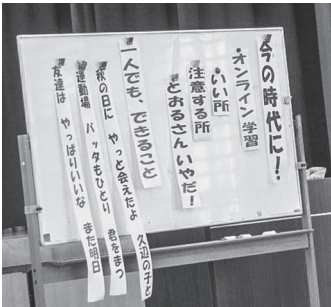 今の時代に！
・オンライン学習
・いい所
注意する所
とおるさんいやだ！
一人でも、できること
秋の日に　やっと会えたよ　久辺の子と
運動場　バッタもひとり　君をまつ
友達は　やっぱりいいな　また明日